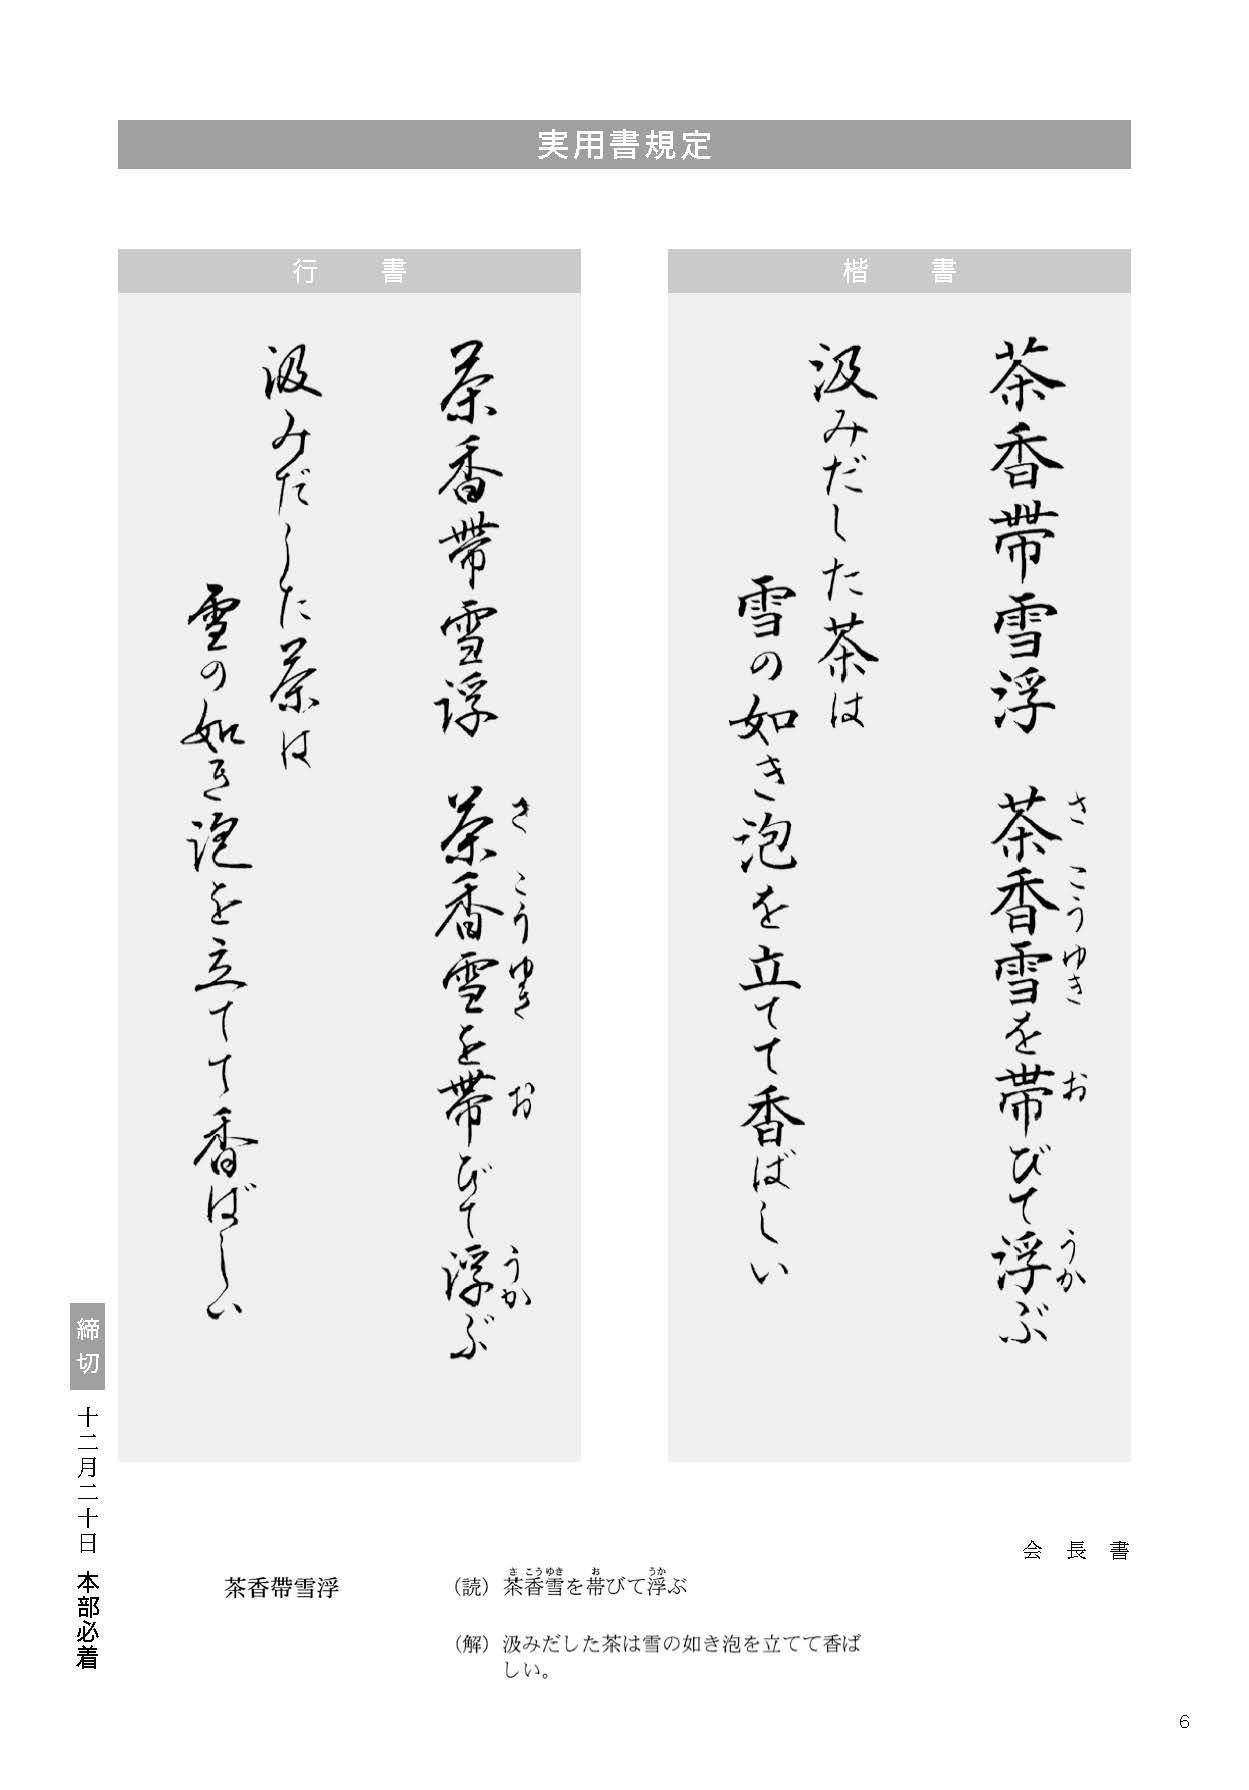 実用書規定
楷書
茶香帶雪浮 茶香雪を帯びて浮ぶ
さ こうゆき お うか
汲みだした茶は
雪の如き泡を立てて香ばしい
行書
茶香帶雪浮 茶香雪を帯びて浮ぶ
さ こうゆき お うか
汲みだした茶は
雪の如き泡を立てて香ばしい
締切 十二月二十日 本部必着
会長書
茶香帶雪浮
さ こうゆき お うか
（読）茶香雪を帯びて浮ぶ
（解）汲みだした茶は雪の如き泡を立てて香ば
しい。
6